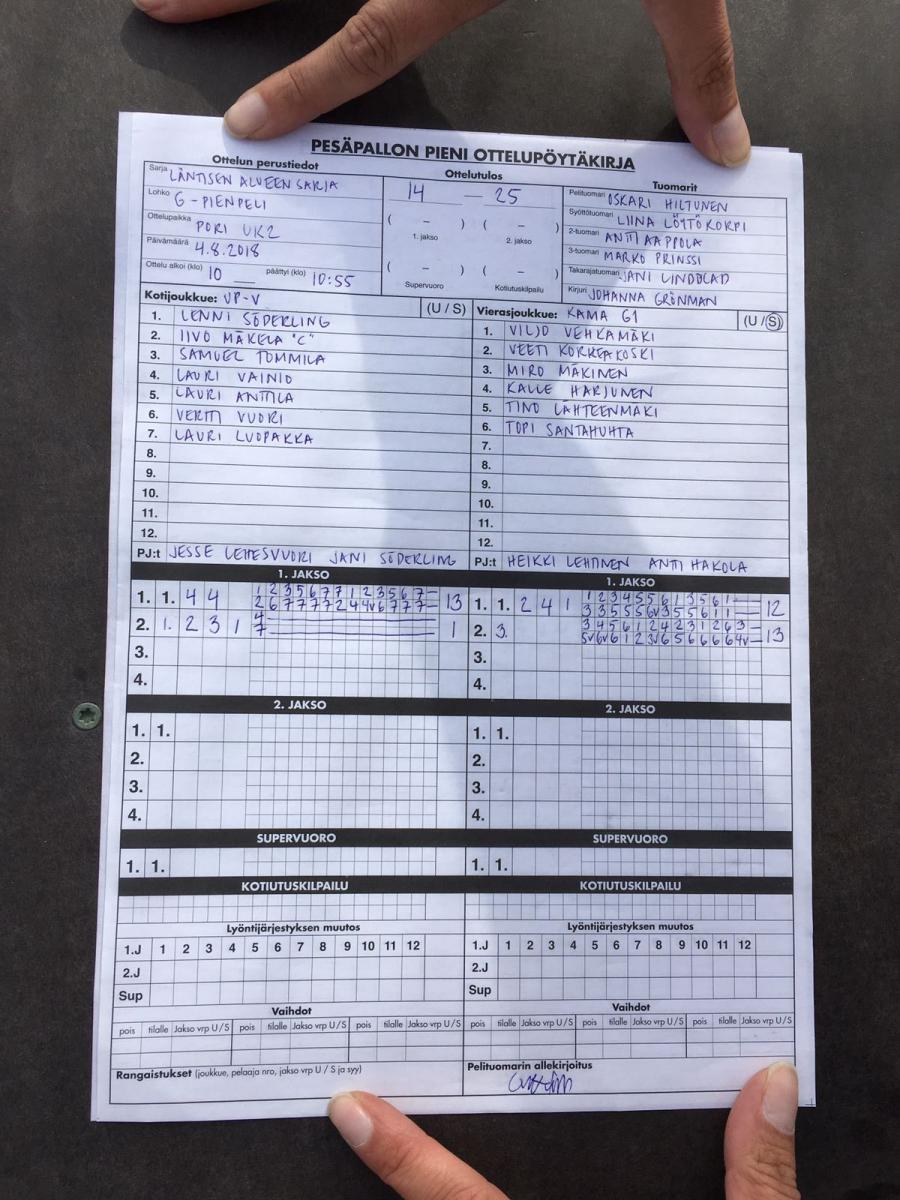 PESÄPALLON PIENI OTTELUPÖYTÄKIRJA
Ottelun perustiedot
Sarja LÄNTISEN ALUEEN SARJA
Lohko G-PIENPELI
Ottelupaikka PORI UK2
Päivämäärä 4.8.2018
Ottelu alkoi (klo) 10 päättyi (klo) 10:55
Ottelutulos
14 – 25
( – ) ( – )
1. jakso 2. jakso
( – ) ( – )
Supervuoro Kotiutuskilpailu
Tuomarit
Pelituomari OSKARI HILTUNEN
Syöttötuomari LIINA LÖTTÖKORPI
2-tuomari ANTTI AAPPOLA
3-tuomari MARKO PRINSSI
Takarajatuomari JANI LINDBLAD
Kirjuri JOHANNA GRÖNMAN
Kotijoukkue: VP-V (U / S)
1. LENNI SÖDERLING
2. IIVO MÄKELÄ "C"
3. SAMUEL TOMMILA
4. LAURI VAINIO
5. LAURI ANTTILA
6. VERTTI VUORI
7. LAURI LUOPAKKA
8.
9.
10.
11.
12.
PJ:t JESSE LEHESVUORI JANI SÖDERLING
Vierasjoukkue: KAMA G1 (U / S)
1. VILJO VEHKAMÄKI
2. VEETI KORKEAKOSKI
3. MIRO MÄKINEN
4. KALLE HARJUNEN
5. TINO LÄHTEENMÄKI
6. TOPI SANTAHUHTA
7.
8.
9.
10.
11.
12.
PJ:t HEIKKI LEHTINEN ANTTI HAKOLA
1. JAKSO
1. 1. 4 4 1 2 3 5 6 7 7 1 2 3 5 6 7 –
2 6 7 7 7 7 2 4 4v 6 7 7 7 – 13
2. 1. 2 3 1 4
7 1
3.
4.
1. JAKSO
1. 1. 2 4 1 1 2 3 4 5 5 6 1 3 5 6 1 –
3 3 5 5 5 6v 3 5 5 6 1 1 – 12
2. 3. 3 4 5 6 1 2 4 2 3 1 2 6 3 –
5v 6v 6 1 2 3v 6 5 6 6 6 6 4v – 13
3.
4.
2. JAKSO
1. 1.
2.
3.
4.
2. JAKSO
1. 1.
2.
3.
4.
SUPERVUORO
1. 1.
SUPERVUORO
1. 1.
KOTIUTUSKILPAILU
KOTIUTUSKILPAILU
Lyöntijärjestyksen muutos
1.J 1 2 3 4 5 6 7 8 9 10 11 12
2.J
Sup
Lyöntijärjestyksen muutos
1.J 1 2 3 4 5 6 7 8 9 10 11 12
2.J
Sup
Vaihdot
pois tilalle Jakso vrp U / S pois tilalle Jakso vrp U / S pois tilalle Jakso vrp U / S
Vaihdot
pois tilalle Jakso vrp U / S pois tilalle Jakso vrp U / S pois tilalle Jakso vrp U / S
Rangaistukset (joukkue, pelaaja nro, jakso vrp U / S ja syy)
Pelituomarin allekirjoitus